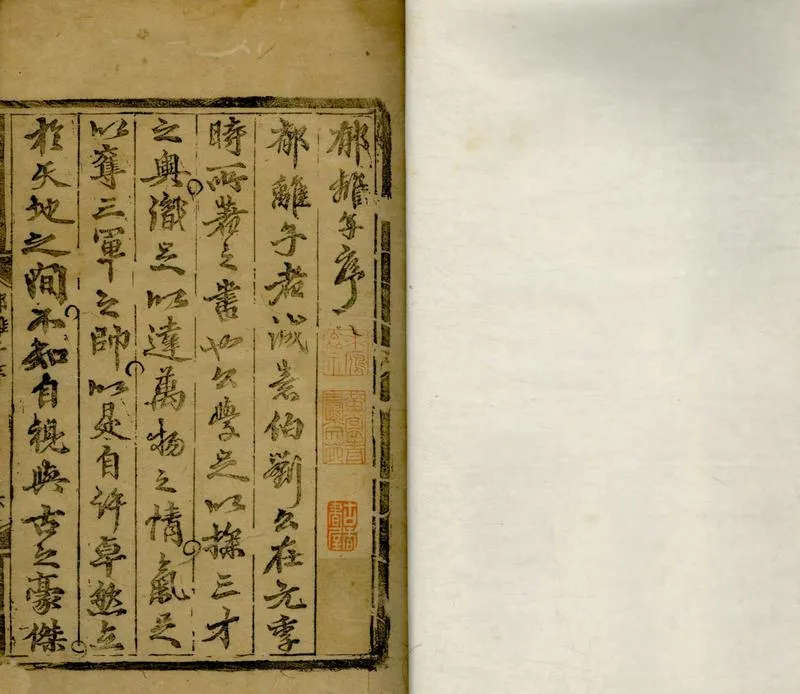 郁離子序
郁離子者誠意伯劉公在元季
時所著之書也公學足以探三才
之奧識足以達萬物之情氣足
以奪三軍之帥以是自許卓然立
於天地之間不知自視與古之豪傑